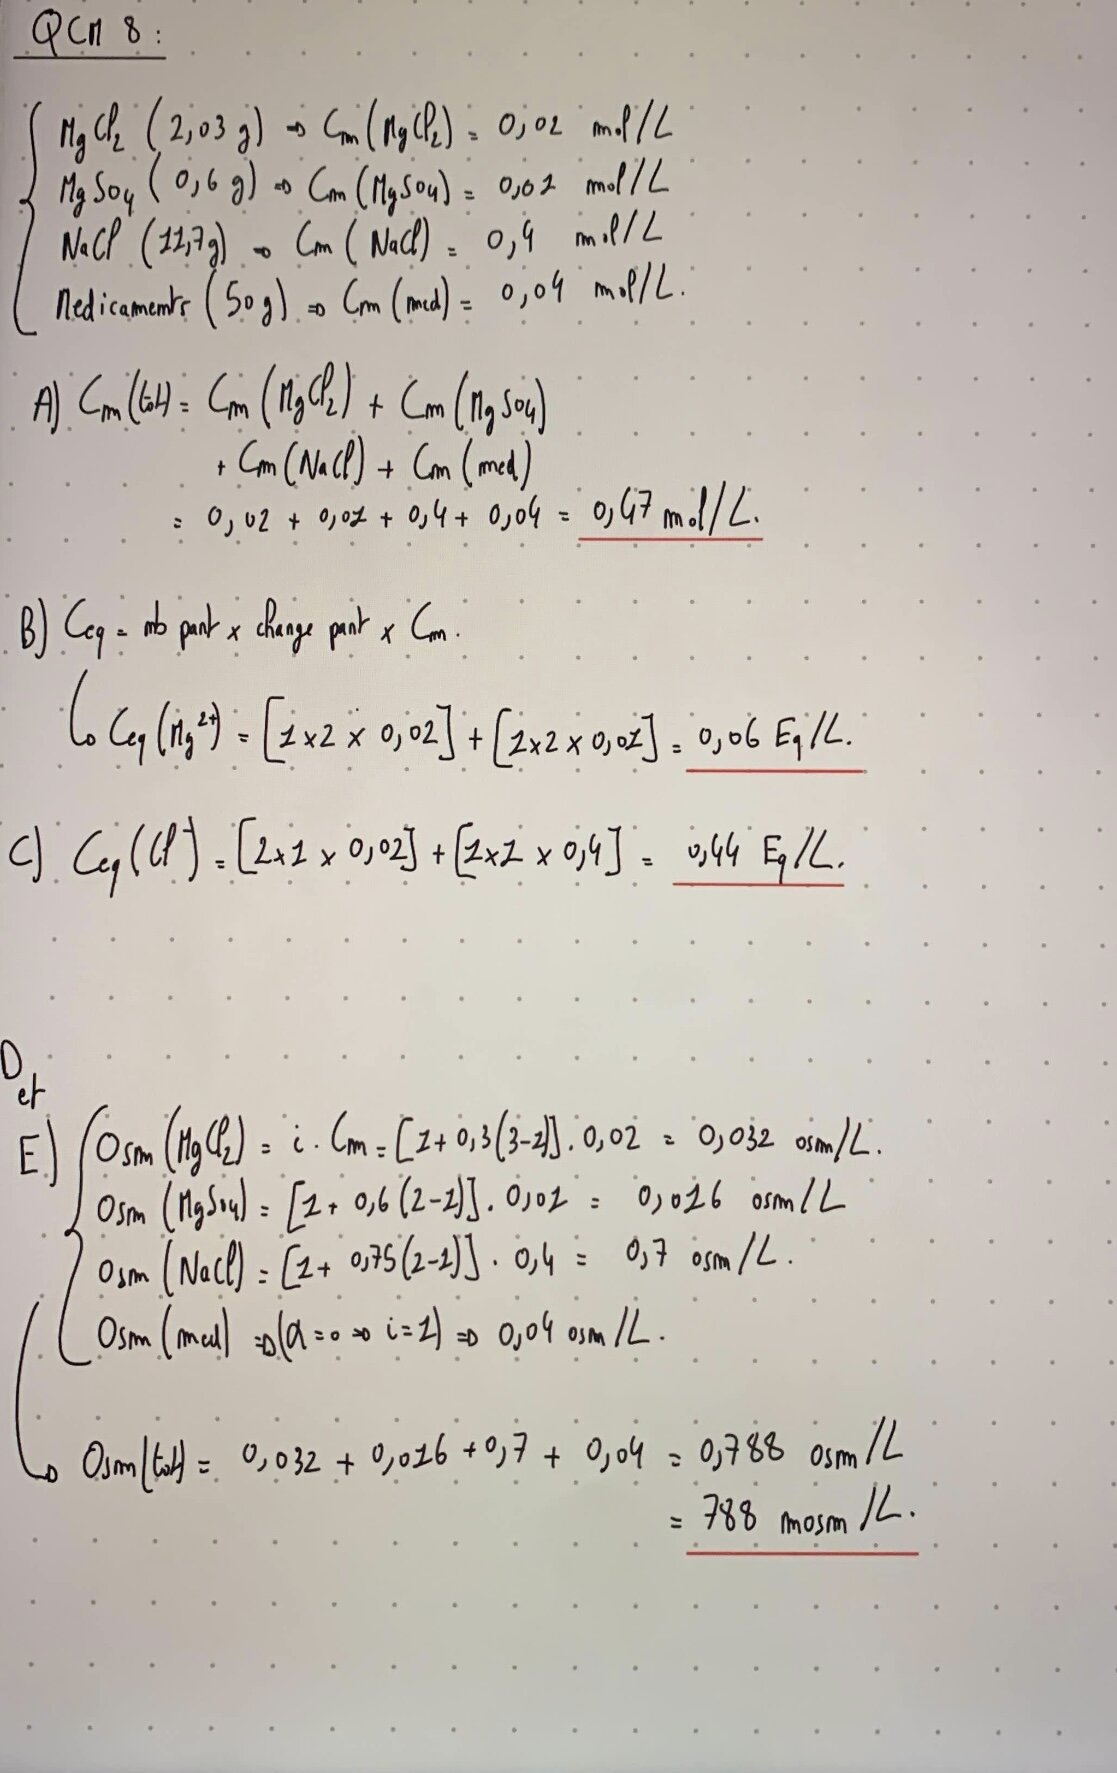 QCM 8 :
MgCl₂ (2,03 g) ⇒ Cm (MgCl₂) = 0,02 mol/L
MgSO₄ (0,6 g) ⇒ Cm (MgSO₄) = 0,01 mol/L
NaCl (11,7g) ⇒ Cm (NaCl) = 0,4 mol/L
Medicaments (50g) ⇒ Cm (med) = 0,04 mol/L.
A) Cm (tot) = Cm (MgCl₂) + Cm (MgSO₄)
+ Cm (NaCl) + Cm (med)
= 0,02 + 0,01 + 0,4 + 0,04 = 0,47 mol/L.
B) Ceq = nb part x change part x Cm.
↳ Ceq (Mg²⁺) = [1x2 x 0,02] + [1x2 x 0,01] = 0,06 Eq/L.
C) Ceq (Cl⁻) = [2x1 x 0,02] + [1x1 x 0,4] = 0,44 Eq/L.
D et
E) Osm (MgCl₂) = i . Cm = [1+ 0,3(3-1)] . 0,02 = 0,032 osm/L.
Osm (MgSO₄) = [1+ 0,6 (2-1)] . 0,01 = 0,016 osm/L
Osm (NaCl) = [1+ 0,75(2-1)] . 0,4 = 0,7 osm/L.
Osm (med) ⇒ (α=0 ⇒ i=1) ⇒ 0,04 osm/L.
↳ Osm (tot) = 0,032 + 0,016 + 0,7 + 0,04 = 0,788 osm/L
= 788 mosm/L.